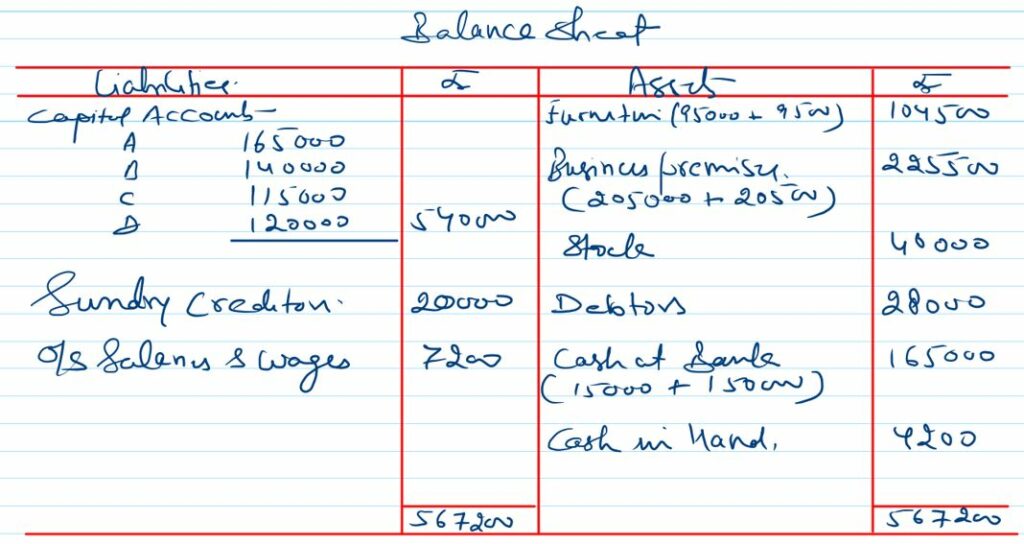 Balance Sheet
Liabilities ₹ Assets ₹
Capital Accounts Furniture (95000 + 9500) 104500
A 165000
B 140000 Business premises. 225500
C 115000 (205000 + 20500)
D 120000 540000
Stock 40000
Sundry Creditors. 20000 Debtors 28000
O/s Salaries & Wages 7200 Cash at Bank 165000
(15000 + 150000)
Cash in Hand. 4200
567200 567200